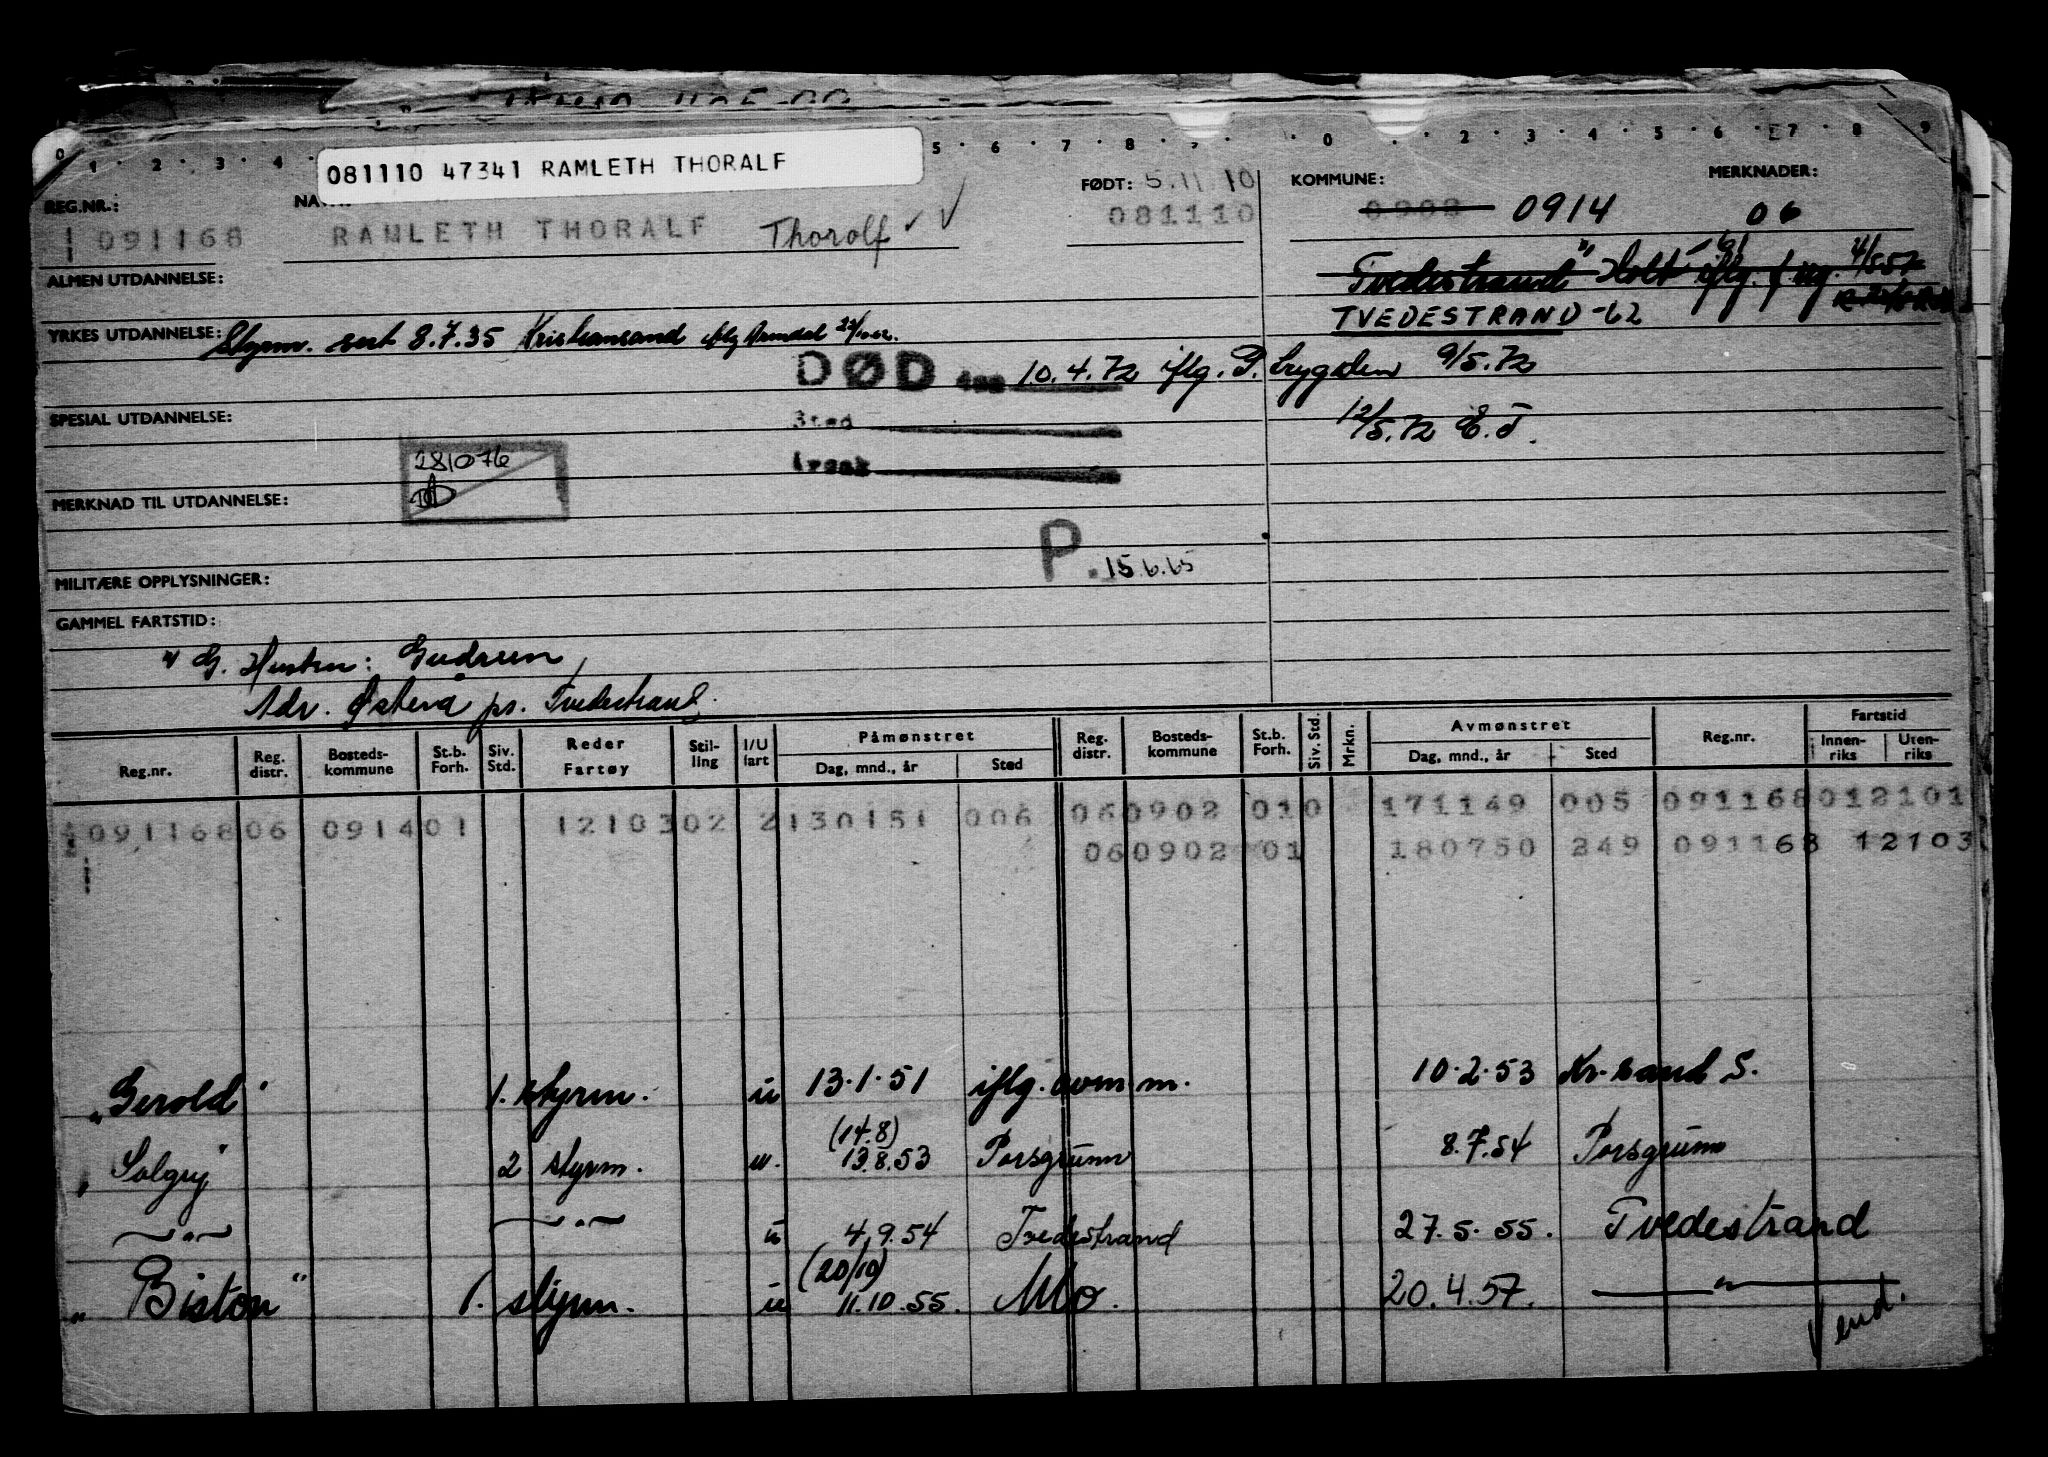 081110 47341 RAMLETH THORALF
REG.NR.:
091168
RAMLETH THORALF Thorolf
FØDT: 5.11.10
081110
KOMMUNE:
0914
MERKNADER:
06
ALMEN UTDANNELSE:
Tvedestrand
TVEDESTRAND -62
YRKES UTDANNELSE: Styrm. sert 8.7.35 Kristiansand iflg Arendal
DØD den 10.4.72 iflg. 9/5.72
SPESIAL UTDANNELSE:
Sted
12/5.72 E.T.
Årsak
281076
MERKNAD TIL UTDANNELSE:
P. 15.6.65
MILITÆRE OPPLYSNINGER:
GAMMEL FARTSTID:
G. Hustru: Gudrun
Adr. Østerå ps. Tvedestrand.
Reg.nr. Reg. distr. Bosteds-kommune St.b. Forh. Siv. Std. Reder Fartøy Stil-ling I/U fart Påmønstret Dag, mnd., år Sted Reg. distr. Bosteds-kommune St.b. Forh. Siv. Std. Mrkn. Avmønstret Dag, mnd., år Sted Reg.nr. Fartstid Innen-riks Uten-riks
091168 06 0914 01 12103 02 2 130151 006 06 0902 01 0 171149 005 091168 012101
06 0902 01 180750 249 091168 12103
"Gerold" 1. styrm. u 13.1.51 iflg. avm.m. 10.2.53 Kr.sand S.
"Solgry" 2 styrm. u. (14.8) 13.8.53 Porsgrunn 8.7.54 Porsgrunn
—"— —"— u 4.9.54 Tvedestrand 27.5.55. Tvedestrand
"Biston" 1. styrm. u (20/10) 11.10.55. Mo. 20.4.57. —"—
Vend.